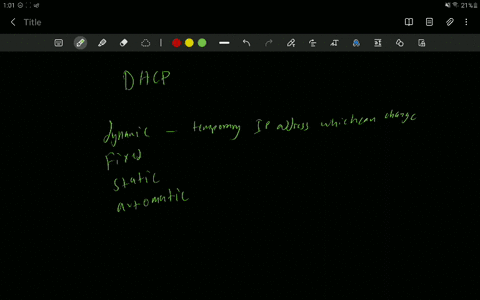 1:01
21%
Title
DHCP
dynamic — temporary IP address which can change
Fixed
static
automatic